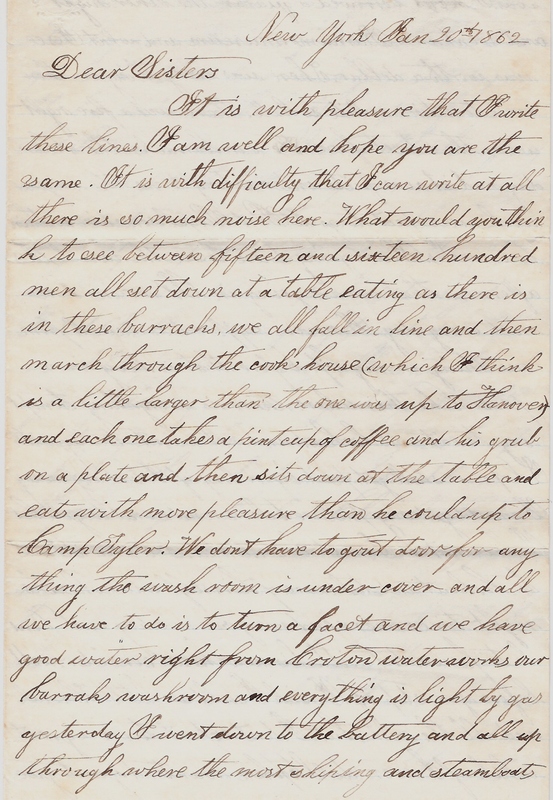 New York Jan 20th 1862
Dear Sisters
It is with pleasure that I write
these lines. I am well and hope you are the
same. It is with difficulty that I can write at all
there is so much noise here. What would you thin
k to see between fifteen and sixteen hundred
men all set down at a table eating as there is
in these barrachs, we all fall in line and then
march through the cook house (which I think
is a little larger than the one was up to Hanover)
and each one takes a pint cup of coffee and his grub
on a plate and then sits down at the table and
eats with more pleasure than he could up to
Camp Tyler. We dont have to gout door for any
thing the wash room is under cover and all
we have to do is to turn a facet and we have
good water right from Croton waterworks our
barraks washroom and everything is light by gas
yesterday I went down to the battery and all up
through where the most shiping and steamboats